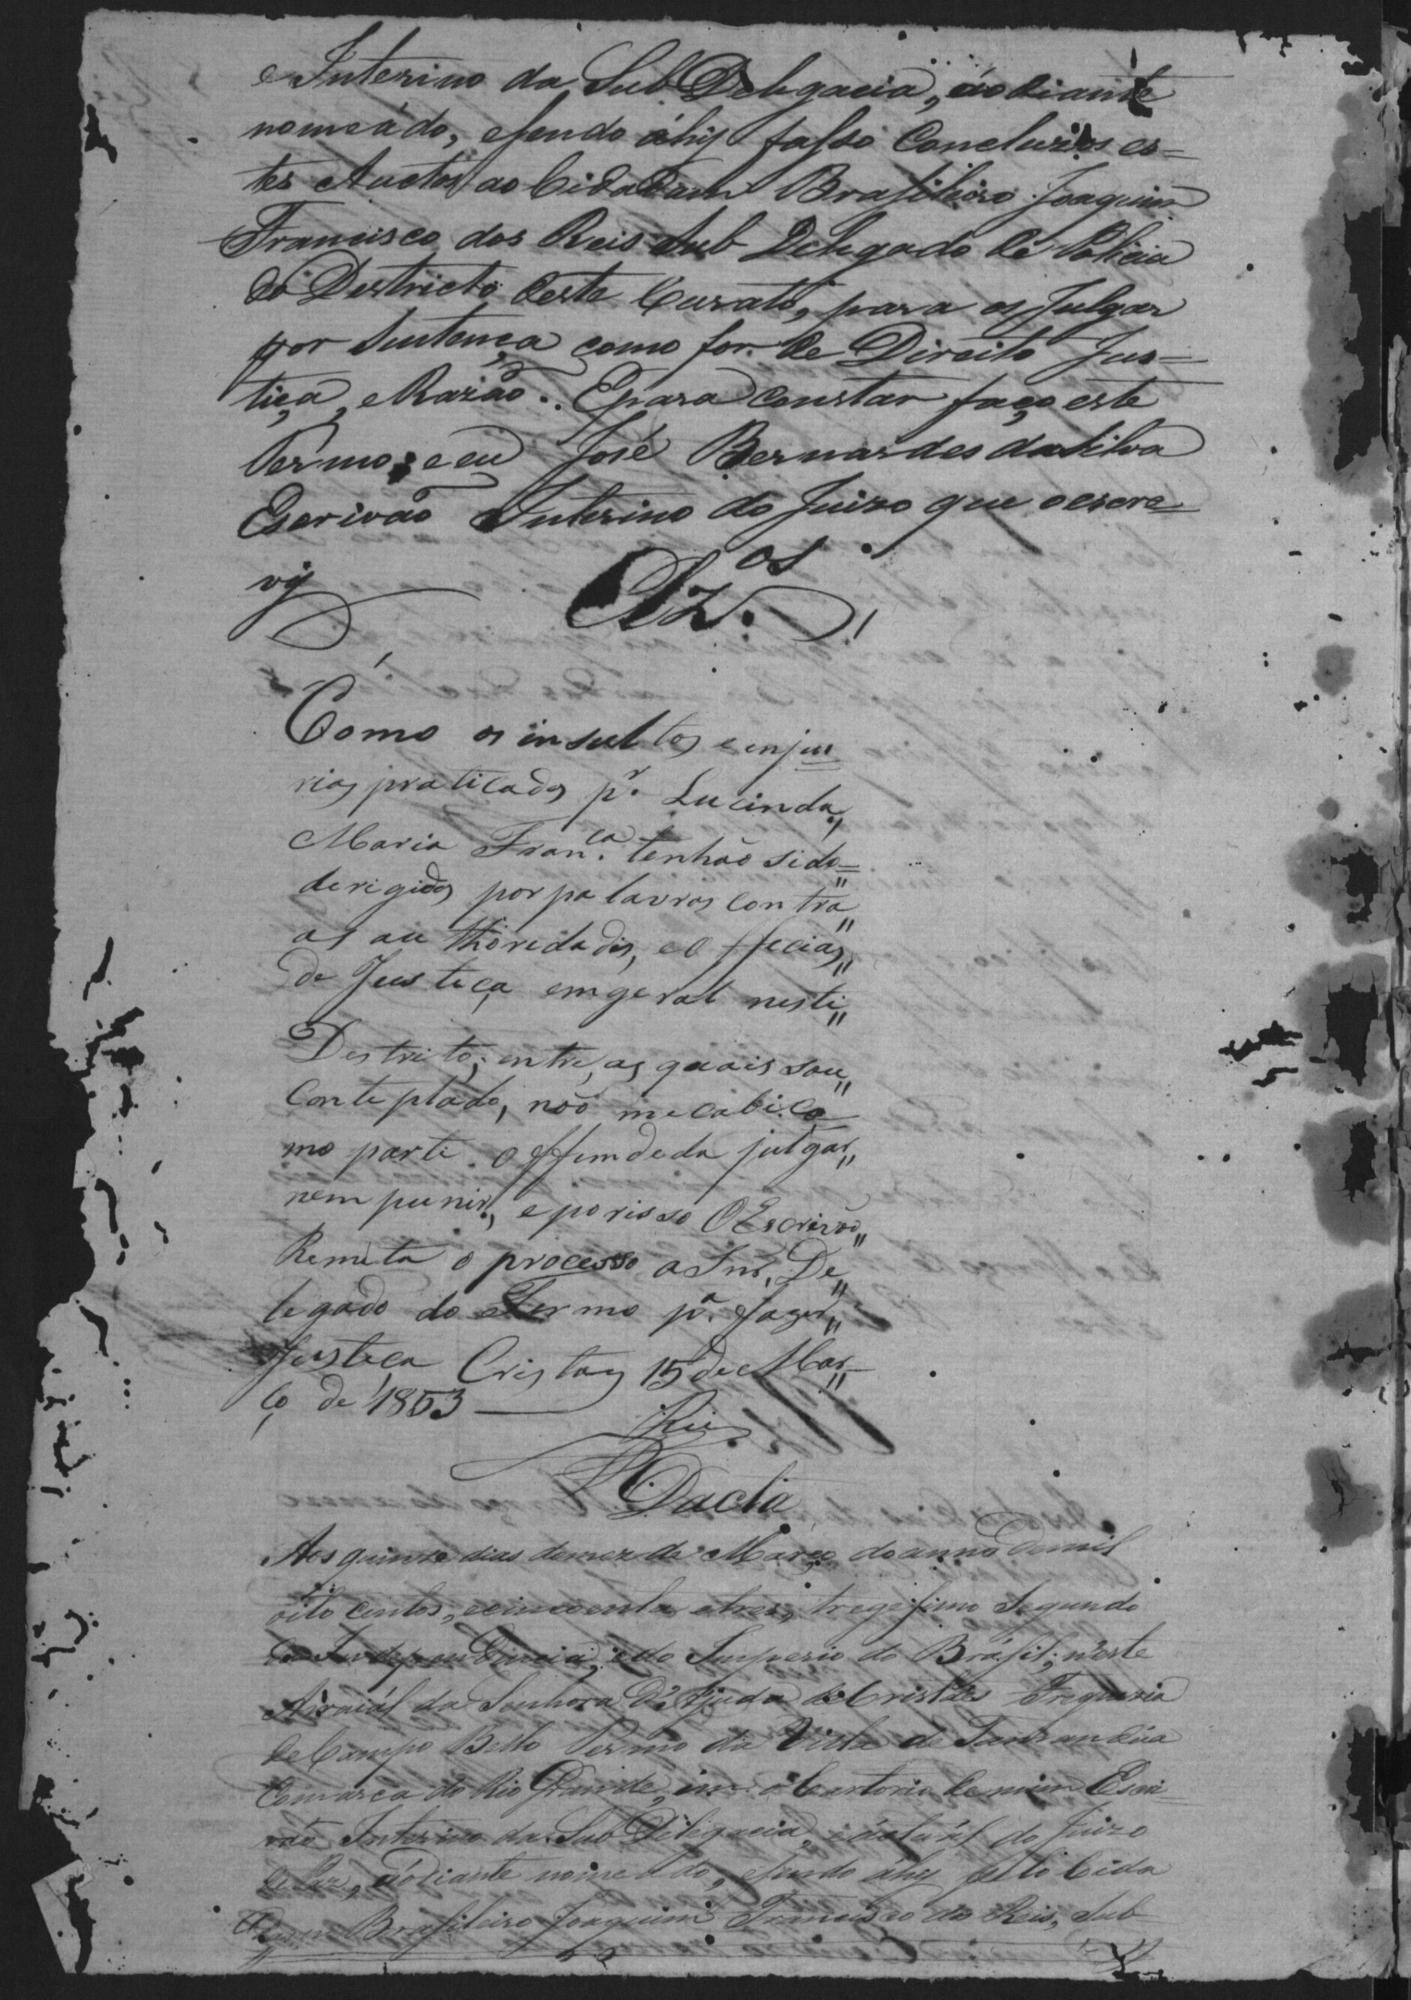 e Interino da Sub Delegacia, aodiante
nomeádo, esendo áhij fasso Concluzos es=
tes Auctos ao Cidadam Brasileiro Joaquim
Francisco dos Reis Sub Delegado de Policia
do Destricto deste Curato, para os Julgar
por Sentença como for de Direito Jus=
tiça, e Razão. Epara constar faço este
Termo; e eu José Bernardes da Silva
Escrivão Interino do Juizo que o escre=
vij
Clz.os
Como os insultos e enju=
rias praticados p.r Lucinda,,
Maria Fran.ca tenhão sido=
derigidos por palavras contra,,
as authoredades, e Officias,,
de Justeça emgeral neste,,
Destrito; entre, as quais sou,,
Conteplado, não me cabe co=
mo parte offendeda julgar,,
nem punir, e porisso O Escrivão,,
Remeta o processo a Snr. De,,
legado do Termo p.a fazer,,
Justeça Cristaes 15 de Mar=
ço de 1853
Reis
Dacta
Aos quinze dias domez de Março do anno demil
oito centos, ecincoenta etres, tregesimo Segundo
da Independencia, e do Imperio do Brásil; n'este
Arraiál da Senhora d'Ajuda de Cristáes Freguezia
de Campo Bello Termo da Villa de Tamanduá
Comarca do Rio Grande, em o Cartorio de mim Escri=
vão Interino da Sub Delegacia, e actuál do Juizo
de Paz, aodiante nomeádo, esendo ahij pello Cida
dam Brasileiro Joaquim Francisco dos Reis, Sub